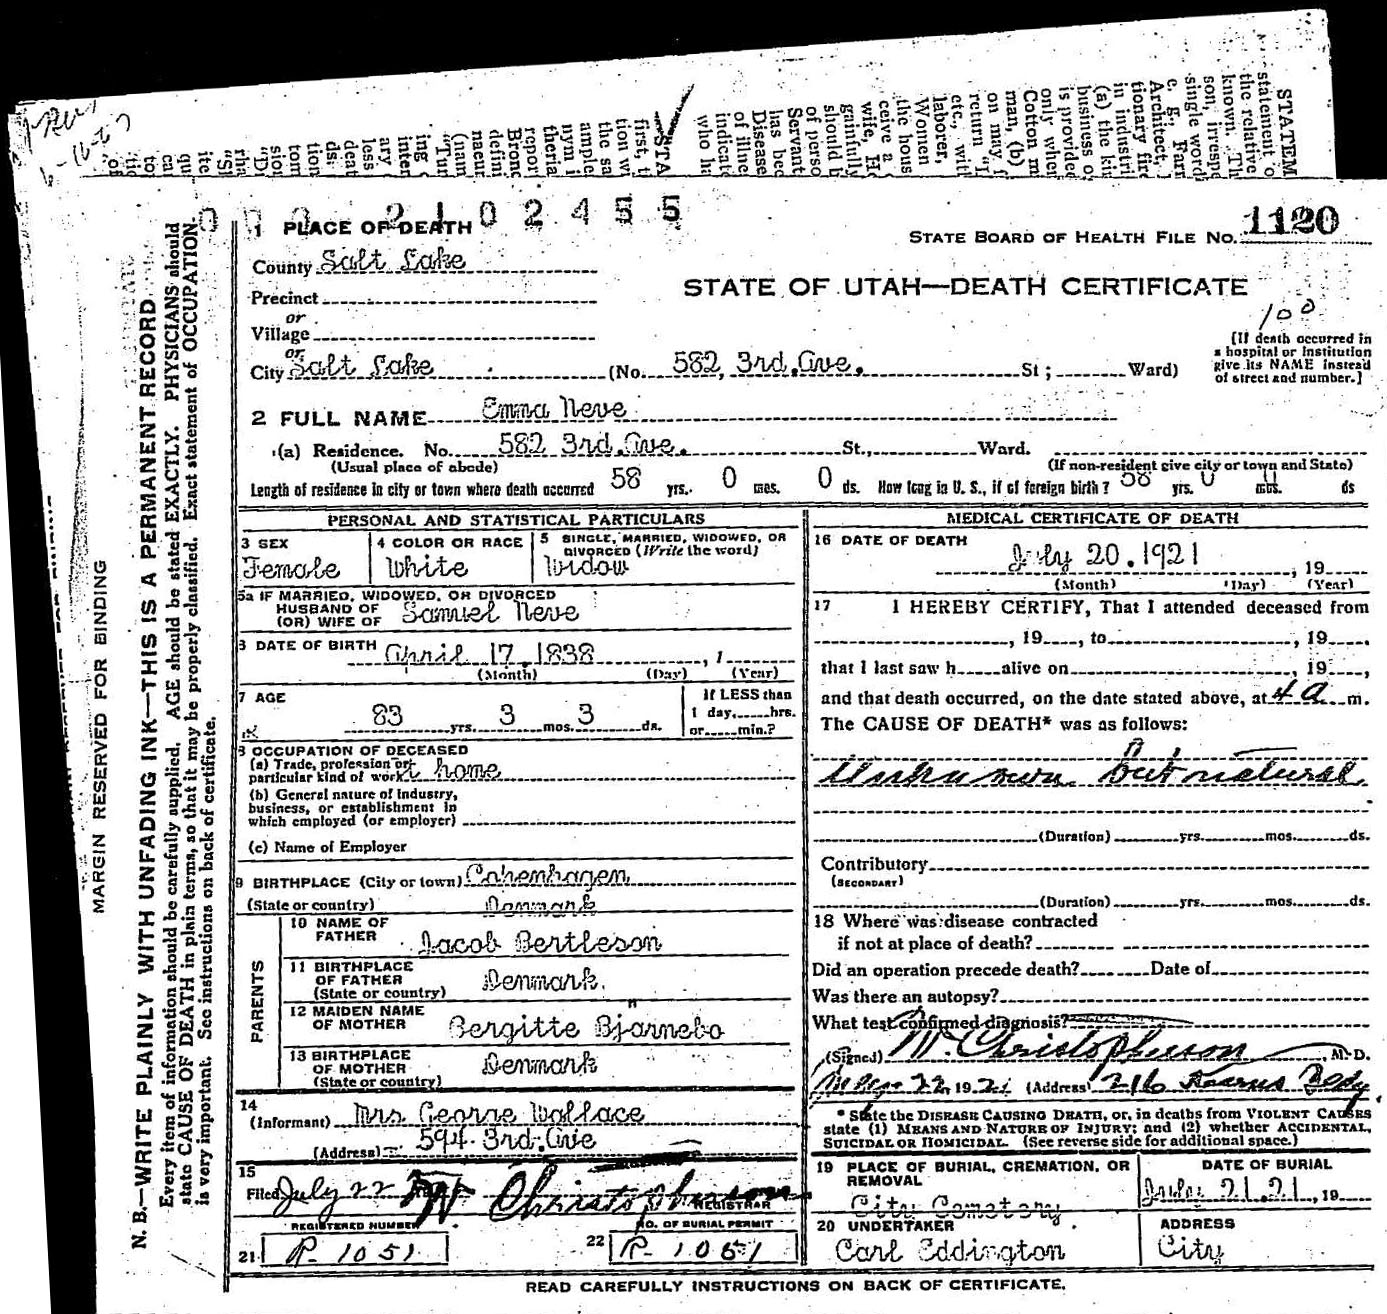 STATEM
statement o
the relative
known. Th
son, irrespe
single word
e. g., Farn
Architect,
tionary fire
in industri
(a) the ki
business o
is provided
only when
Cotton m
man, (b)
on may f
return "L
etc., with
laborer,
Women
the hous
ceive a
wife, H
gainfully
should b
of perso
Servant
has bee
Disease
of illne
indicate
who ha
STA
first, t
tion wi
the sa
ample
nym i
theria
repor
Bronc
defini
naeun
(nam
"Tur
ing
inter
ary
less
deat
ds:
tion
tom
sion
"D
rha
"S
ite
cau
qu
to
tic
of
000 2102455
1120
STATE BOARD OF HEALTH FILE NO.
1 PLACE OF DEATH
County Salt Lake
STATE OF UTAH—DEATH CERTIFICATE
Precinct
or
Village
100
or
City Salt Lake (No. 582, 3rd. Ave. St; Ward)
[If death occurred in
a hospital or institution
give its NAME instead
of street and number.]
2 FULL NAME Emma Neve
(a) Residence. No. 582 3rd. Ave. St., Ward.
(Usual place of abode) (If non-resident give city or town and State)
Length of residence in city or town where death occurred 58 yrs. 0 mos. 0 ds. How long in U. S., if of foreign birth? 58 yrs. 0 mos. ds
PERSONAL AND STATISTICAL PARTICULARS
3 SEX
Female
4 COLOR OR RACE
White
5 SINGLE, MARRIED, WIDOWED, OR
DIVORCED (Write the word)
Widow
5a IF MARRIED, WIDOWED, OR DIVORCED
HUSBAND OF
(OR) WIFE OF Samuel Neve
6 DATE OF BIRTH April 17. 1838, 1
(Month) (Day) (Year)
7 AGE
83 yrs. 3 mos. 3 ds.
If LESS than
1 day, hrs.
or min.?
8 OCCUPATION OF DECEASED
(a) Trade, profession or
particular kind of work At home
(b) General nature of industry,
business, or establishment in
which employed (or employer)
(c) Name of Employer
9 BIRTHPLACE (City or town) Copenhagen
(State or country) Denmark
PARENTS
10 NAME OF
FATHER Jacob Bertleson
11 BIRTHPLACE
OF FATHER Denmark.
(State or country)
12 MAIDEN NAME
OF MOTHER Bergitte Bjarnebo
13 BIRTHPLACE
OF MOTHER Denmark
(State or country)
14
(Informant) Mrs George Wallace
(Address) 594. 3rd. Ave
15
Filed July 22 Christopherson
REGISTRAR
REGISTERED NUMBER
21 P-1051
NO. OF BURIAL PERMIT
22 P-1051
MEDICAL CERTIFICATE OF DEATH
16 DATE OF DEATH
July 20. 1921, 19
(Month) (Day) (Year)
17 I HEREBY CERTIFY, That I attended deceased from
, 19 , to , 19 ,
that I last saw h alive on , 19 ,
and that death occurred, on the date stated above, at 4 a m.
The CAUSE OF DEATH* was as follows:
Unknown but natural
(Duration) yrs. mos. ds.
Contributory
(SECONDARY)
(Duration) yrs. mos. ds.
18 Where was disease contracted
if not at place of death?
Did an operation precede death? Date of
Was there an autopsy?
What test confirmed diagnosis?
(Signed) Christopherson, M.D.
22, 1921 (Address) 216 Kearns Bldg.
* State the DISEASE CAUSING DEATH, or, in deaths from VIOLENT CAUSES
state (1) MEANS AND NATURE OF INJURY; and (2) whether ACCIDENTAL,
SUICIDAL OR HOMICIDAL. (See reverse side for additional space.)
19 PLACE OF BURIAL, CREMATION, OR
REMOVAL
City Cemetery
DATE OF BURIAL
July 21. 21, 19
20 UNDERTAKER
Carl Eddington
ADDRESS
City
READ CAREFULLY INSTRUCTIONS ON BACK OF CERTIFICATE.
MARGIN RESERVED FOR BINDING
N. B.—WRITE PLAINLY WITH UNFADING INK—THIS IS A PERMANENT RECORD
Every item of information should be carefully supplied. AGE should be stated EXACTLY. PHYSICIANS should
state CAUSE OF DEATH in plain terms, so that it may be properly classified. Exact statement of OCCUPATION
is very important. See instructions on back of certificate.